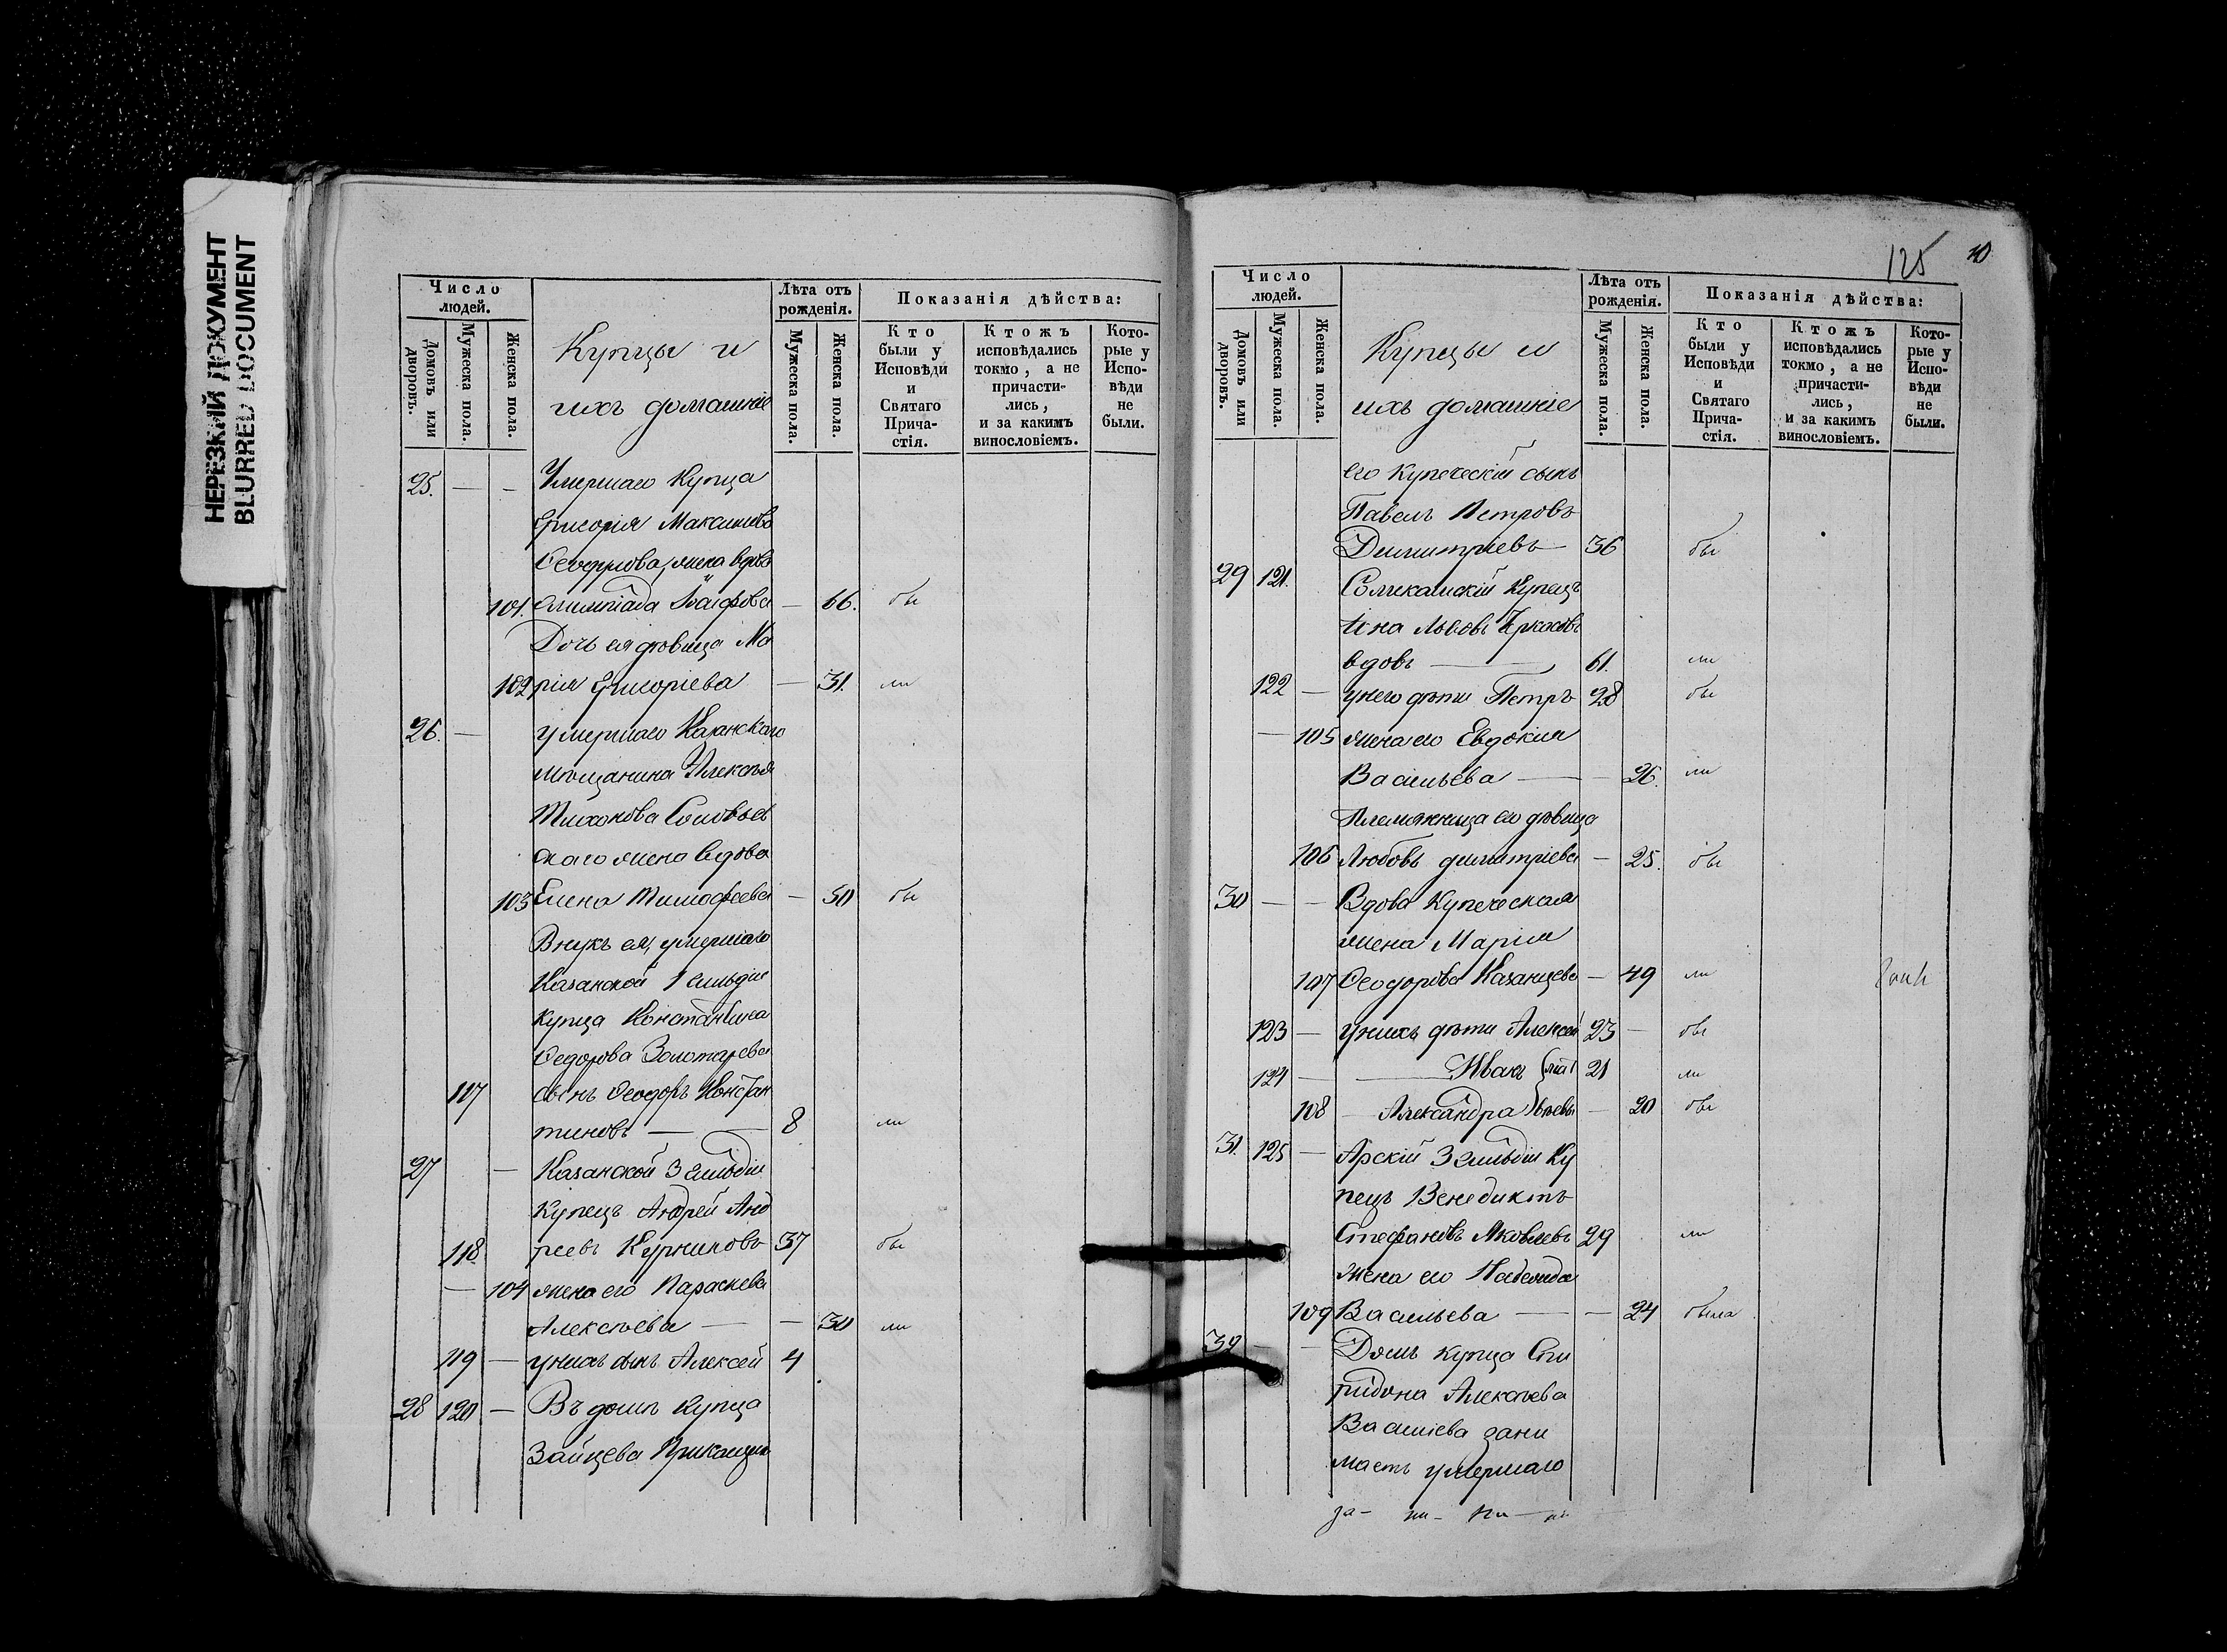 НЕРЕЗКИЙ ДОКУМЕНТ
BLURRED DOCUMENT
Число людей.
Домовъ или дворовъ.
Мужеска пола.
Женска пола.
Купцы и
ихъ домашніе
Лѣта отъ рожденія.
Мужеска пола.
Женска пола.
Показанія дѣйства:
Кто были у Исповѣди и Святаго Причастія.
Ктожъ исповѣдались токмо, а не причастились, и за какимъ винословіемъ.
Которые у Исповѣди не были.
25. — — Умершаго Купца
Григорія Максимова
Феодорова, жена вдова
101. Олимпіада — 66. бы
Дочь ея дѣвица Ма
102 рія Григоріева — 31. ли
26. — умершаго Казанскаго
мѣщанина Алексѣя
Тихонова Соловьев
скаго жена вдова
103 Елена Тимофеева — 50 бы
Внукъ ея, умершаго
Казанской 1 гильдіи
купца Константина
Федорова Золотарева
117 сынъ Феодоръ Констан
тиновъ — — 8 ли
27 — Казанской 3 гильдіи
Купецъ Андрей Анд
118. реевъ Курниковъ 37 бы
— 104 жена его Параскева
Алексѣева — — 30 ли
119 — у нихъ сынъ Алексей 4
28 120 — Въ домѣ Купца
Зайцева Прикащик
125
Число людей.
Домовъ или дворовъ.
Мужеска пола.
Женска пола.
Купцы и
ихъ домашніе
Лѣта отъ рожденія.
Мужеска пола.
Женска пола.
Показанія дѣйства:
Кто были у Исповѣди и Святаго Причастія.
Ктожъ исповѣдались токмо, а не причастились, и за какимъ винословіемъ.
Которые у Исповѣди не были.
его купеческій сынъ
Павелъ Петровъ
Димитріевъ — 36 бы
29 121. Соликамскій Купецъ
Львовъ
вдовъ — 61. ли
122 — у него дѣти Петръ 28 бы
— 105 жена его Евдокія
Васильева — — 26. ли
Племянница его дѣвица
106 Любовь димитріева — 25. бы
30 — — Вдова Купеческая
жена Марія
107 Феодорова Казанцева — 49 ли
123 — у нихъ дѣти Алексей 23 — бы
124 — — Иванъ 21 ли
108 — Александра — 20 бы
31. 125 — Арскій 3 гильдіи Ку
пецъ Венедиктъ
Стефановъ Яковлевъ 29 ли
жена его Надежда
109 Васильева — — 24 была
32 — — Домъ купца Спи
ридона Алексѣева
Васильева зани
маетъ умершаго